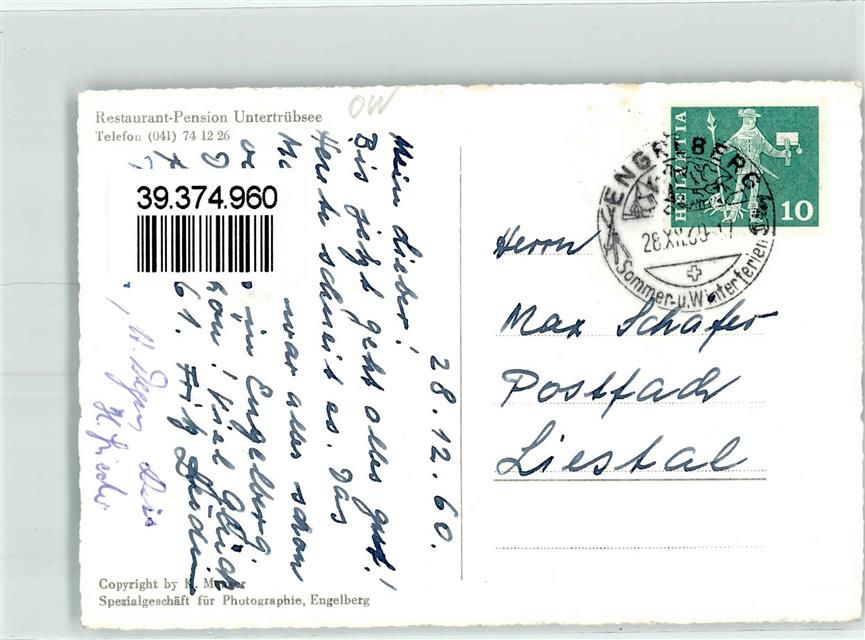 Restaurant-Pension Untertrübsee
Telefon (041) 74 12 26
OW
39.374.960
28.12.60.
Mein Lieber!
Bis jetzt geht alles gut!
Heute schneit es. Das
war alles schon
in Engelberg.
viel Glück
61. Fritz
Herrn
Max Schäfer
Postfach
Liestal
HELVETIA
10
ENGELBERG
28.XII.60-17
Sommer- u. Winterferien
Copyright by K.
Spezialgeschäft für Photographie, Engelberg